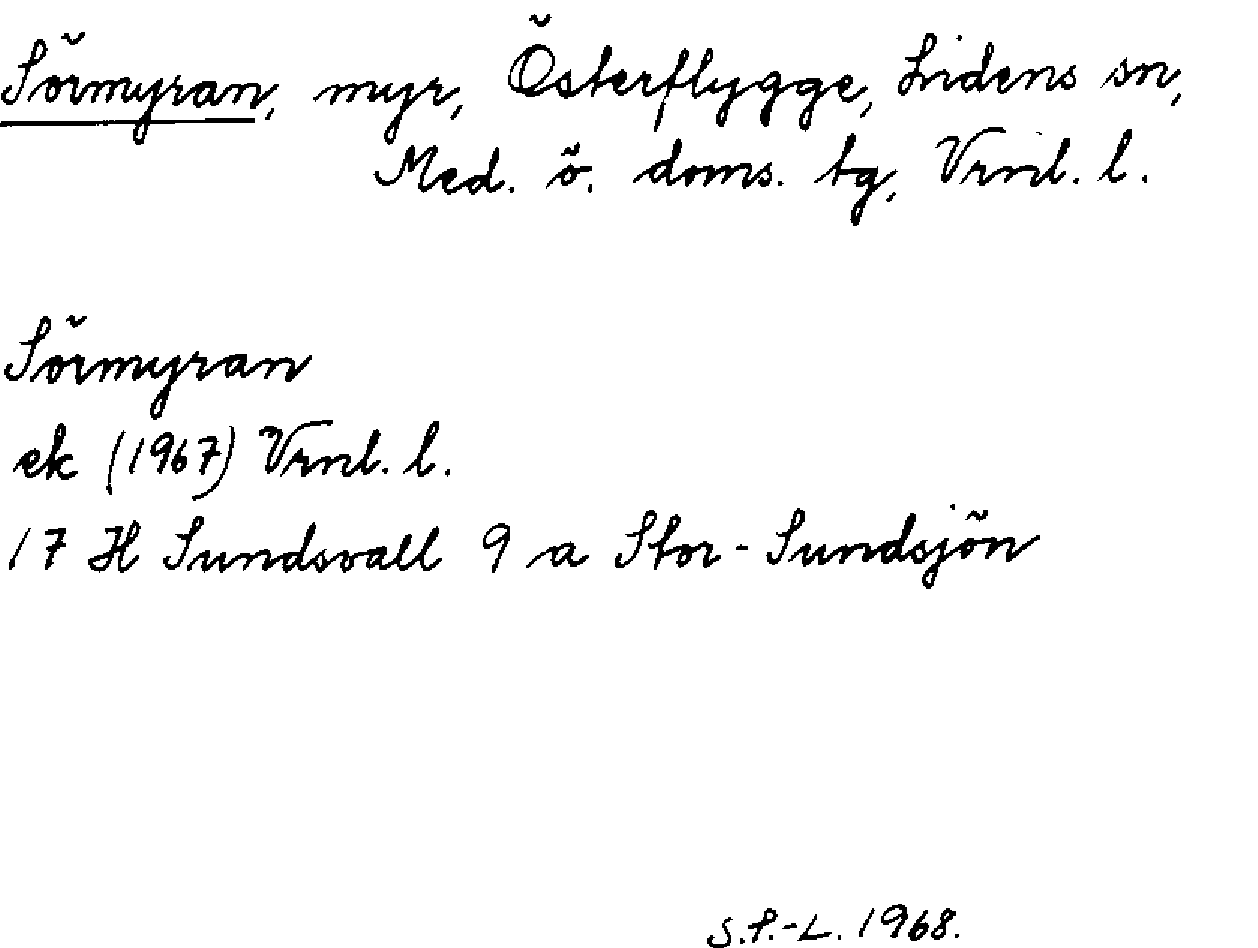 Sörmyran, myr, Österflygge, Lidens sn,
Med. ö. doms. tg, Vrnl. l.
Sörmyran
ek (1967) Vrnl. l.
17 H Sundsvall 9 a Stor-Sundsjön
S.P.-L. 1968.